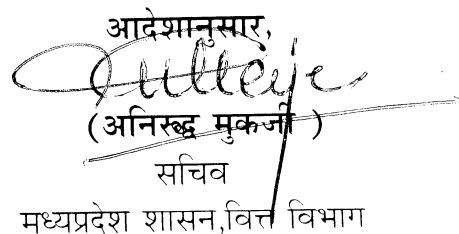 आदेशानुसार,
(अनिरूद्ध मुकर्जी )
सचिव
मध्यप्रदेश शासन,वित्त विभाग